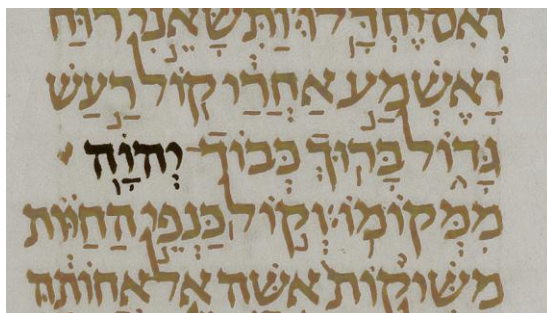 וְאִם יֶחְדָּלוּ וַתִּשָּׂאֵנִי רוּחַ
וָאֶשְׁמַע אַחֲרַי קוֹל רַעַשׁ
גָּדוֹל בָּרוּךְ כְּבוֹד יְהֹוָה
מִמְּקוֹמוֹ׃ וְקוֹל כַּנְפֵי הַחַיּוֹת
מַשִּׁיקוֹת אִשָּׁה אֶל אֲחוֹתָהּ